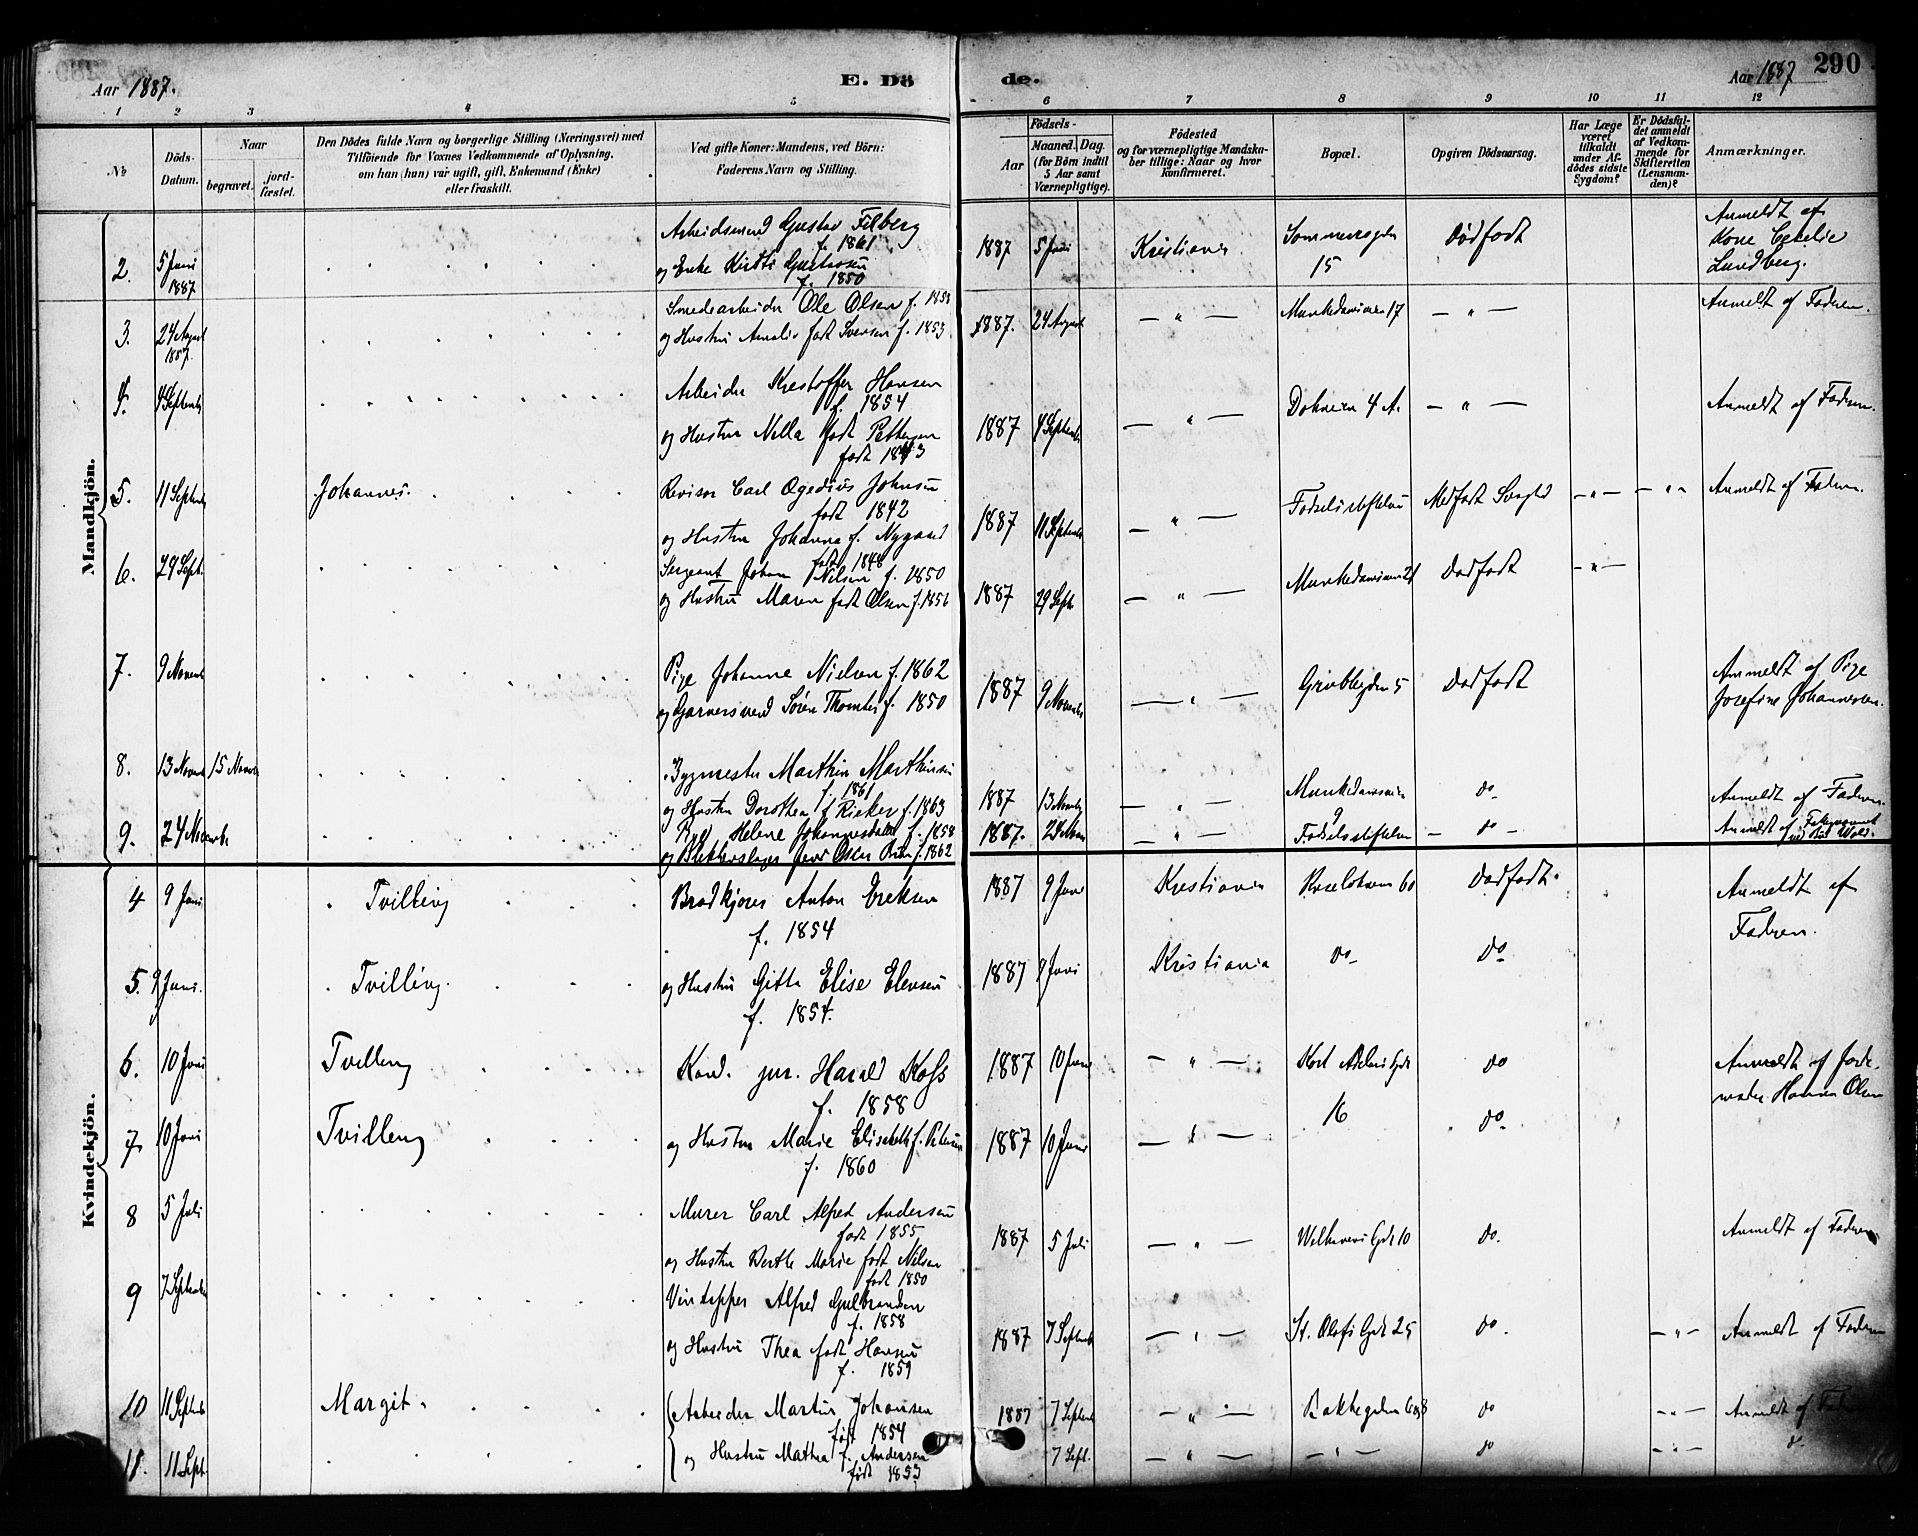 Aar 1887.
E. Dö
de.
Aar 1887
290
1 2 3 4 5 6 7 8 9 10 11 12
No
Döds-Datum.
Naar
begravet.
jord-fæstet.
Den Dödes fulde Navn og borgerlige Stilling (Næringsvei) med
Tilföiende for Voxnes Vedkommende af Oplysning,
om han (hun) var ugift, gift, Enkemand (Enke)
eller fraskilt.
Ved gifte Koner: Mandens, ved Börn:
Faderens Navn og Stilling.
Födsels-
Aar
Maaned. Dag.
(for Börn indtil
5 Aar samt
Værnepligtige).
Födested
og for værnepligtige Mandska-
ber tillige: Naar og hvor
konfirmeret.
Bopæl.
Opgiven Dödsaarsag.
Har Læge
været
tilkaldt
under Af-
dödes sidste
Sygdom?
Er Dödsfal-
det anmeldt
af Vedkom-
mende for
Skifteretten
(Lensman-
den)?
Anmærkninger.
Mandkjön.
2. 5 Juni 1887
Arbeidsmand Gustav Filberg
f. 1861
og Enke Kirsti Gustavsen
f. 1850
1887 5 Juni Kristiania
15
Dødfødt
Anmeldt af
Kone Cecilie
Lundberg.
3. 24 August 1887.
Smedearbeider Ole Olsen f. 1853
og Hustru Amalie født Iversen f. 1853
1887. 24 August — " — Munkedamsveien 17 — " — Anmeldt af Faderen.
4. 4 Septembr
Arbeider Kristoffer Hansen
f. 1854
og Hustru født Pettersen
født
1887 4 Septembr — " — Dokveien 4 A. — " — Anmeldt af Faderen.
5. 11 Septembr Johannes.
Revisor Carl Egedius Johnsen
født 1842
og Hustru Johanna f. Nygaard
født 1848
1887 11 Septembr — " — Fødselsstiftelsen Medfødt Svaghed — " — — " — Anmeldt af Faderen.
6. 29 Sept.
Sergeant Johan Nilsen f. 1850
og Hustru Maren født Olsen f. 1856
1887 29 Sept. — " — Munkedamsveien Dødfødt — " —
7. 9 Novembr
Pige Johanne Nielsen f. 1862
og Garversvend Søren f. 1850
1887 9 Novembr — " — Grubbegaden 5 Dødfødt
Anmeldt af Pige
Josefine Johannesen.
8. 13 Novembr 15 Novembr
Bygmester Marthin Marthinsen
f. 1861
og Hustru Dorothea f. f. 1863
1887 13 Novembr — " — Munkedamsveien
9
do Anmeldt af Faderen.
9. 24 Novembr.
Pige Helene f. 1858
og Blikkenslager f. 1862
1887. 24 Novbr — " — Fødselsstiftelsen — do — Anmeldt af
Kvindekjön.
4 9 Juni Tvilling
Brødkjører Anton Eriksen
f. 1854
1887 9 Juni Kristiania 60 Dødfødt.
Anmeldt af
Faderen.
5. 9 Juni. Tvilling.
og Hustru Gitta Elise Elensen
f. 1854.
1887 9 Juni Kristiania do do
6. 10 Juni Tvilling
Kand. jur. Harald
f. 1858
1887 10 Juni — " — Kort Adelers Gade
16
do
Anmeldt af Jorde-
moder Hanna Olsen
7. 10 Juni Tvilling
og Hustru Marie Elisabeth f. Petersen
f. 1860
1887 10 Juni — " — do
8 5 Juli
Murer Carl Alfred Andersen
født 1855
og Hustru Berthe Marie født Nilsen
født 1850
1887 5 Juli — " — Welhavens Gade 10 do. Anmeldt af Faderen
9 7 Septembr
Vintapper Alfred Gulbrandsen
f. 1858
og Hustru Thea født Hansen
f. 1859
1887 7 Septembr — " — St. Olafs Gade 25 do. — " — Anmeldt af Faderen
10 11 Septembr Margit.
Arbeider Martin Johansen
født 1854
1887 7 Septembr — " — do — " — Anmeldt af Faderen
11. 11 Sept.
og Hustru Mathea f. Andersen
født 1853
7 Sept. — " — — " — do — " — do